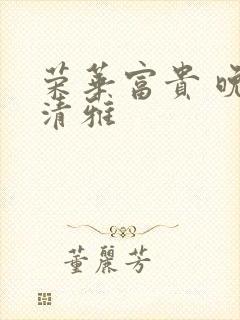 荣华富貴 晚
清雅
董麗芳